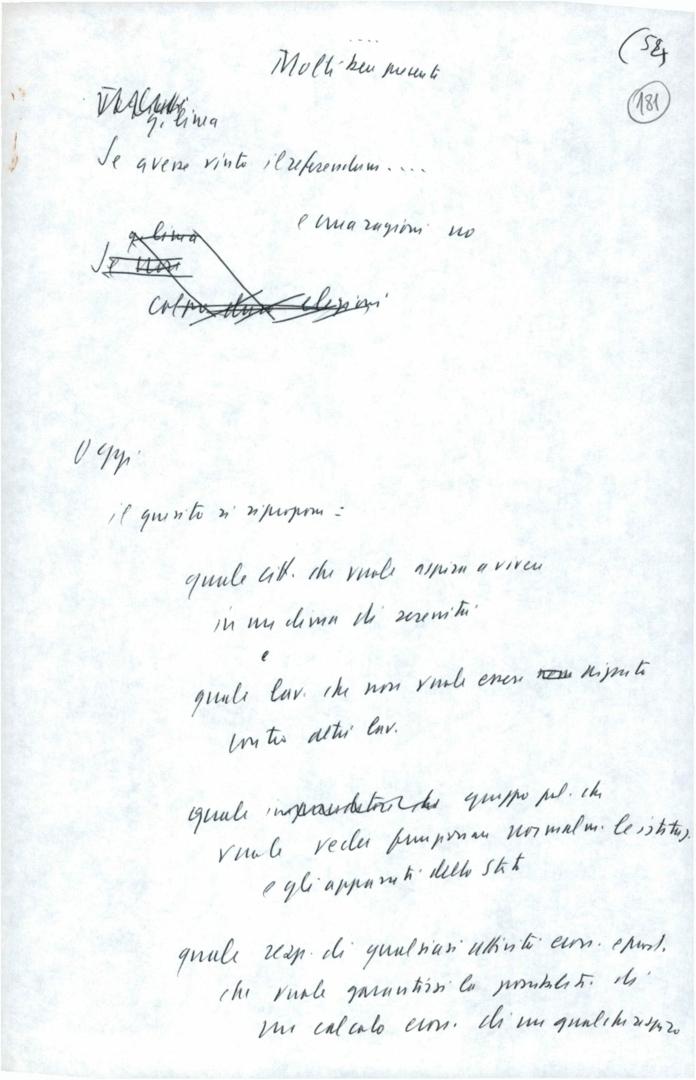 (58
181
Molti ben presenti
q. linea
Se avesse vinto il referendum....
e una ragioni no
q. linea
Se
colpo due elezioni
Oggi
il quesito si ripropone =
quale citt. che vuole aspira a vivere
in un clima di serenità
e
quale lav. che non vuole essere
contro altri lav.
quale gruppo pol. che
vuole veder funzionare normalm. le istituz.
e gli apparati dello Stato
quale resp. di qualsiasi attività econ. e prod.
che vuole garantirsi la possibilità di
un calcolo econ. di un qualche respiro